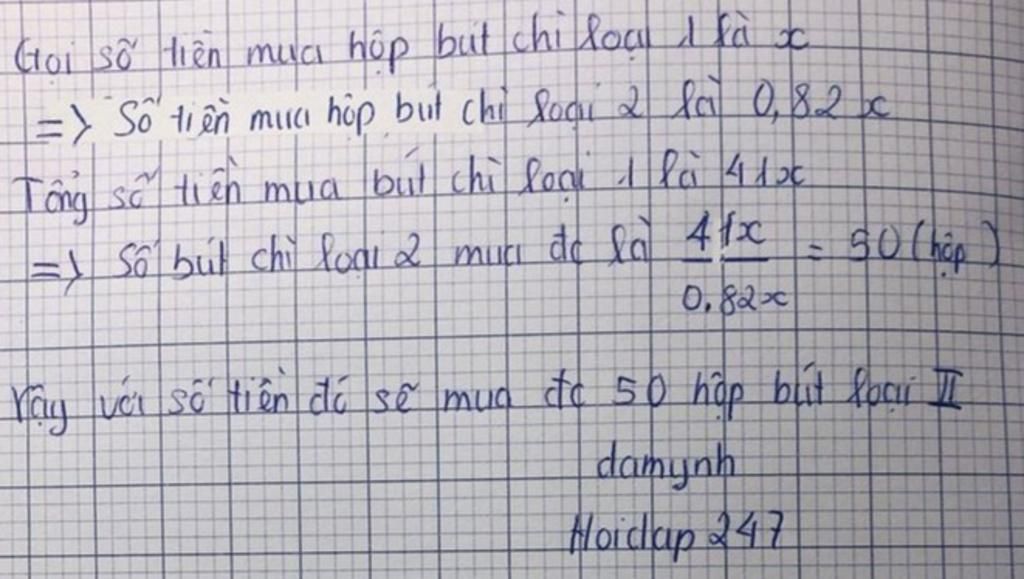 Gọi số tiền mua hộp bút chì loại 1 là x
=> Số tiền mua hộp bút chì loại 2 là 0,82 x
Tổng số tiền mua bút chì loại 1 là 41x
=> Số bút chì loại 2 mua đc là 41x / 0.82x = 50 (hộp)
Vậy với số tiền đó sẽ mua đc 50 hộp bút loại II
damynh
Hoidap 247